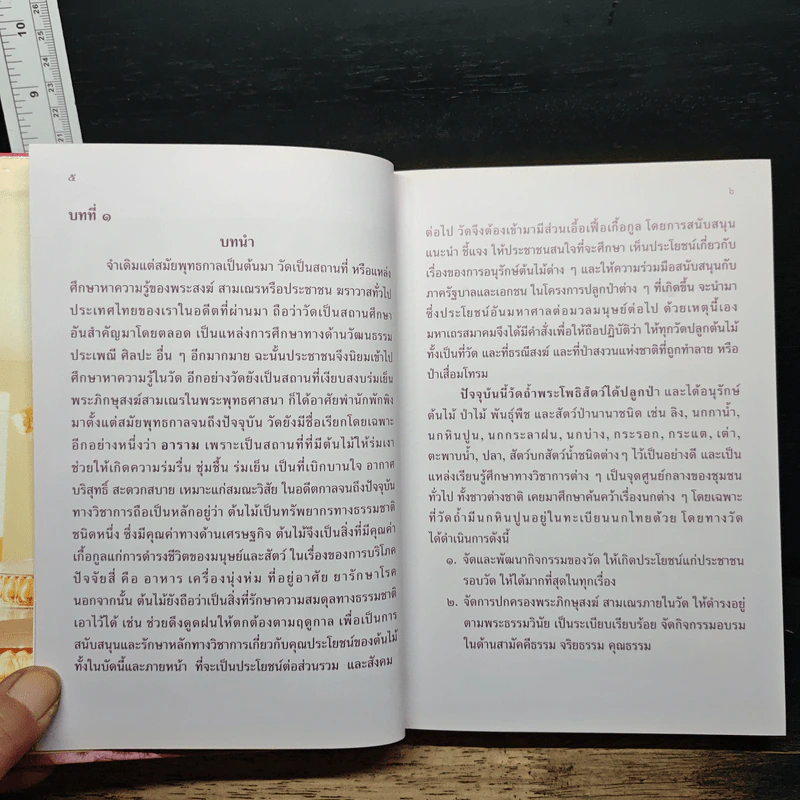 10
9
26
25
24
23
22
21
๕
บทที่ ๑
บทนำ
จำเดิมแต่สมัยพุทธกาลเป็นต้นมา วัดเป็นสถานที่ หรือแหล่ง
ศึกษาหาความรู้ของพระสงฆ์ สามเณรหรือประชาชน ฆราวาสทั่วไป
ประเทศไทยของเราในอดีตที่ผ่านมา ถือว่าวัดเป็นสถานศึกษา
อันสำคัญมาโดยตลอด เป็นแหล่งการศึกษาทางด้านวัฒนธรรม
ประเพณี ศิลปะ อื่น ๆ อีกมากมาย ฉะนั้นประชาชนจึงนิยมเข้าไป
ศึกษาหาความรู้ในวัด อีกอย่างวัดยังเป็นสถานที่เงียบสงบร่มเย็น
พระภิกษุสงฆ์สามเณรในพระพุทธศาสนา ก็ได้อาศัยพำนักพักพิง
มาตั้งแต่สมัยพุทธกาลจนถึงปัจจุบัน วัดยังมีชื่อเรียกโดยเฉพาะ
อีกอย่างหนึ่งว่า อาราม เพราะเป็นสถานที่ที่มีต้นไม้ให้ร่มเงา
ช่วยให้เกิดความร่มรื่น ชุ่มชื้น ร่มเย็น เป็นที่เบิกบานใจ อากาศ
บริสุทธิ์ สะดวกสบาย เหมาะแก่สมณะวิสัย ในอดีตกาลจนถึงปัจจุบัน
ทางวิชาการถือเป็นหลักอยู่ว่า ต้นไม้เป็นทรัพยากรทางธรรมชาติ
ชนิดหนึ่ง ซึ่งมีคุณค่าทางด้านเศรษฐกิจ ต้นไม้จึงเป็นสิ่งที่มีคุณค่า
เกื้อกูลแก่การดำรงชีวิตของมนุษย์และสัตว์ ในเรื่องของการบริโภค
ปัจจัยสี่ คือ อาหาร เครื่องนุ่งห่ม ที่อยู่อาศัย ยารักษาโรค
นอกจากนั้น ต้นไม้ยังถือว่าเป็นสิ่งที่รักษาความสมดุลทางธรรมชาติ
เอาไว้ได้ เช่น ช่วยดึงดูดฝนให้ตกต้องตามฤดูกาล เพื่อเป็นการ
สนับสนุนและรักษาหลักทางวิชาการเกี่ยวกับคุณประโยชน์ของต้นไม้
ทั้งในบัดนี้และภายหน้า ที่จะเป็นประโยชน์ต่อส่วนรวม และสังคม
๖
ต่อไป วัดจึงต้องเข้ามามีส่วนเอื้อเฟื้อเกื้อกูล โดยการสนับสนุน
แนะนำ ชี้แจง ให้ประชาชนสนใจที่จะศึกษา เห็นประโยชน์เกี่ยวกับ
เรื่องของการอนุรักษ์ต้นไม้ต่าง ๆ และให้ความร่วมมือสนับสนุนกับ
ภาครัฐบาลและเอกชน ในโครงการปลูกป่าต่าง ๆ ที่เกิดขึ้น จะนำมา
ซึ่งประโยชน์อันมหาศาลต่อมวลมนุษย์ต่อไป ด้วยเหตุนี้เอง
มหาเถรสมาคมจึงได้มีคำสั่งเพื่อให้ถือปฏิบัติว่า ให้ทุกวัดปลูกต้นไม้
ทั้งเป็นที่วัด และที่ธรณีสงฆ์ และที่ป่าสงวนแห่งชาติที่ถูกทำลาย หรือ
ป่าเสื่อมโทรม
ปัจจุบันนี้วัดถ้ำพระโพธิสัตว์ได้ปลูกป่า และได้อนุรักษ์
ต้นไม้ ป่าไม้ พันธุ์พืช และสัตว์ป่านานาชนิด เช่น ลิง, นกกาน้ำ,
นกหินปูน, นกกระลาฝน, นกบ่าง, กระรอก, กระแต, เต่า,
ตะพาบน้ำ, ปลา, สัตว์บกสัตว์น้ำชนิดต่างๆ ไว้เป็นอย่างดี และเป็น
แหล่งเรียนรู้ศึกษาทางวิชาการต่าง ๆ เป็นจุดศูนย์กลางของชุมชน
ทั่วไป ทั้งชาวต่างชาติ เคยมาศึกษาค้นคว้าเรื่องนกต่าง ๆ โดยเฉพาะ
ที่วัดถ้ำมีนกหินปูนอยู่ในทะเบียนนกไทยด้วย โดยทางวัด
ได้ดำเนินการดังนี้
๑. จัดและพัฒนากิจกรรมของวัด ให้เกิดประโยชน์แก่ประชาชน
รอบวัด ให้ได้มากที่สุดในทุกเรื่อง
๒. จัดการปกครองพระภิกษุสงฆ์ สามเณรภายในวัด ให้ดำรงอยู่
ตามพระธรรมวินัย เป็นระเบียบเรียบร้อย จัดกิจกรรมอบรม
ในด้านสามัคคีธรรม จริยธรรม คุณธรรม